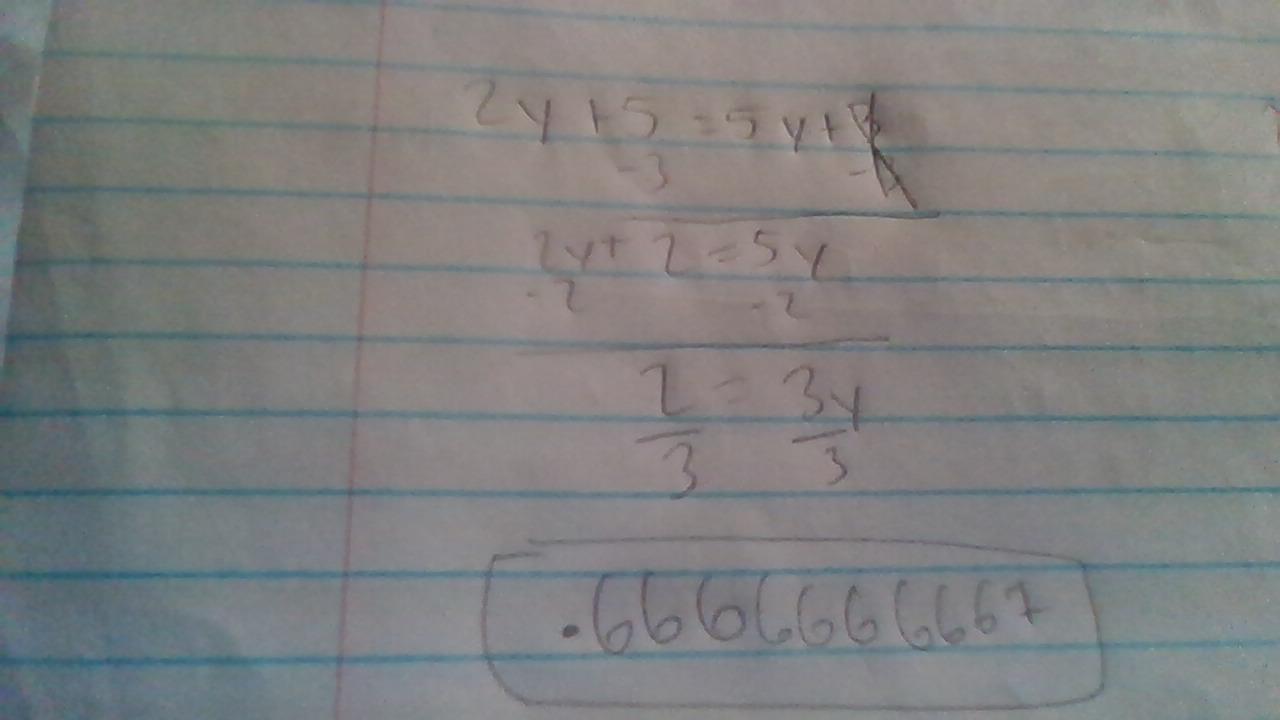 2y+5=5y+3
-3 -3
2y+2=5y
-2 -2
2 = 3y
3 3
.6666666667